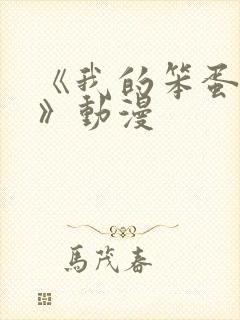 《我的笨蛋
》動漫
馬茂春